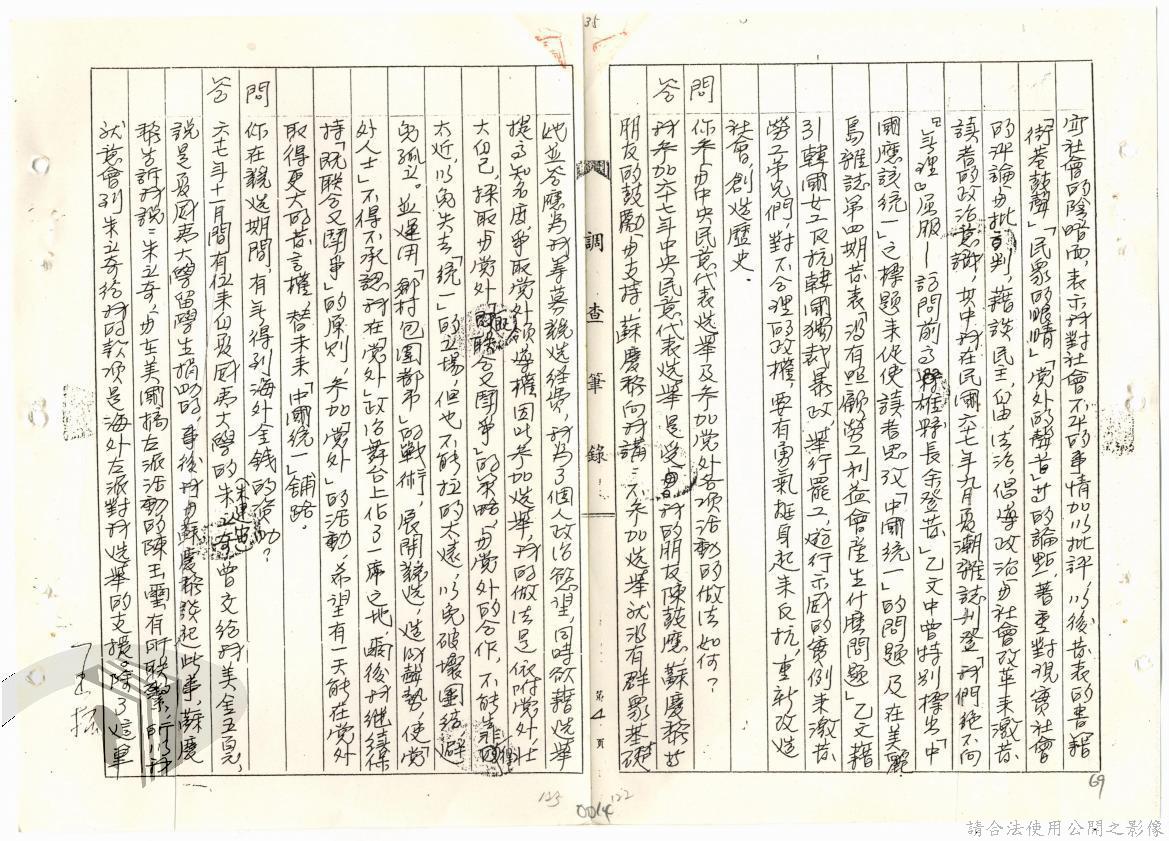 35
穿社會的陰暗面,表示我對社會不平的事情加以批評,以後發表的書籍
「街巷鼓聲」「民眾的眼睛」「党外的聲音」廿的論點,著重對現實社會
的評論与批判,藉談民主、自由、法治,倡導政治与社會改革來激發
讀者的政治意識,其中我在民國六七年九月夏潮雜誌刊登「我們絕不向
『無理』屈服—訪問前高雄縣長余登發」乙文中曾特別標出「中
國應該統一」之標題來使讀者思攷「中國統一」的問題及在美麗
島雜誌第四期發表「沒有照顧勞工利益會產生什麼問題」乙文藉
引韓國女工反抗韓國獨裁暴政,舉行罷工、遊行示威的實例來激發
勞工弟兄們,對不合理的政權,要有勇氣挺身起來反抗,重新改造
社會,創造歷史.
問 你參与中央民意代表選舉及參加党外各項活動的做法如何?
答 我參加六十七年中央民意代表選舉是受我的朋友陳鼓應、蘇慶黎廿
朋友的鼓勵与支持,蘇慶黎向我講:不參加選舉就沒有群眾基礎
調查筆錄
第4頁
她並答應為我籌募競選經費,我為了個人政治慾望,同時欲藉選舉
提高知名度,爭取党外領導權因此參加選舉,我的做法是依附党外壯
大自己,採取与党外「既聯合又鬥爭」的策略,与党外的合作,不能靠的
太近,以免失去「統一」的立場,但也不能拉的太遠,以免破壞團結,避
免孤立。並運用「鄉村包圍都市」的戰術,展開競選,造成聲勢,使「党
外人士」不得不承認我在「党外」政治舞台上佔了一席之地,嗣後我継續保
持「既联合又鬥爭」的原則,參加「党外」的活動,希望有一天能在党外
取得更大的發言權,替未來「中國統一」舖路.
問 你在競選期間,有無得到海外金錢的資助?
答 六七年十一月間有位來自夏威夷大學的朱立奇曾交給我美金五百元,
說是夏威夷大學留學生捐助的,事後我与蘇慶黎談起此事,蘇慶
黎告訴我說:朱立奇,与在美國搞左派活動的陳玉璽有所联繫,所以我
就意會到朱立奇給我的款項是海外左派對我選舉的支援,除了這筆
王拓
123
0014
122
69
請合法使用公開之影像